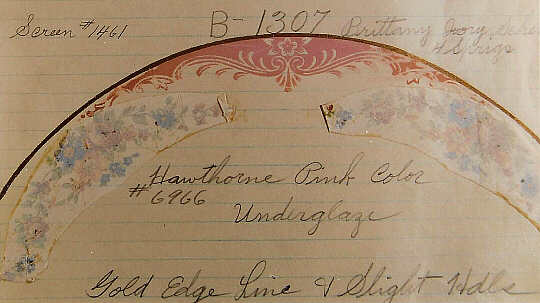 Screen #1461 B-1307 Brittany Ivory
4 Sprigs
Hawthorne Pink Color
#6966
Underglaze
Gold Edge Line & Slight Hdls